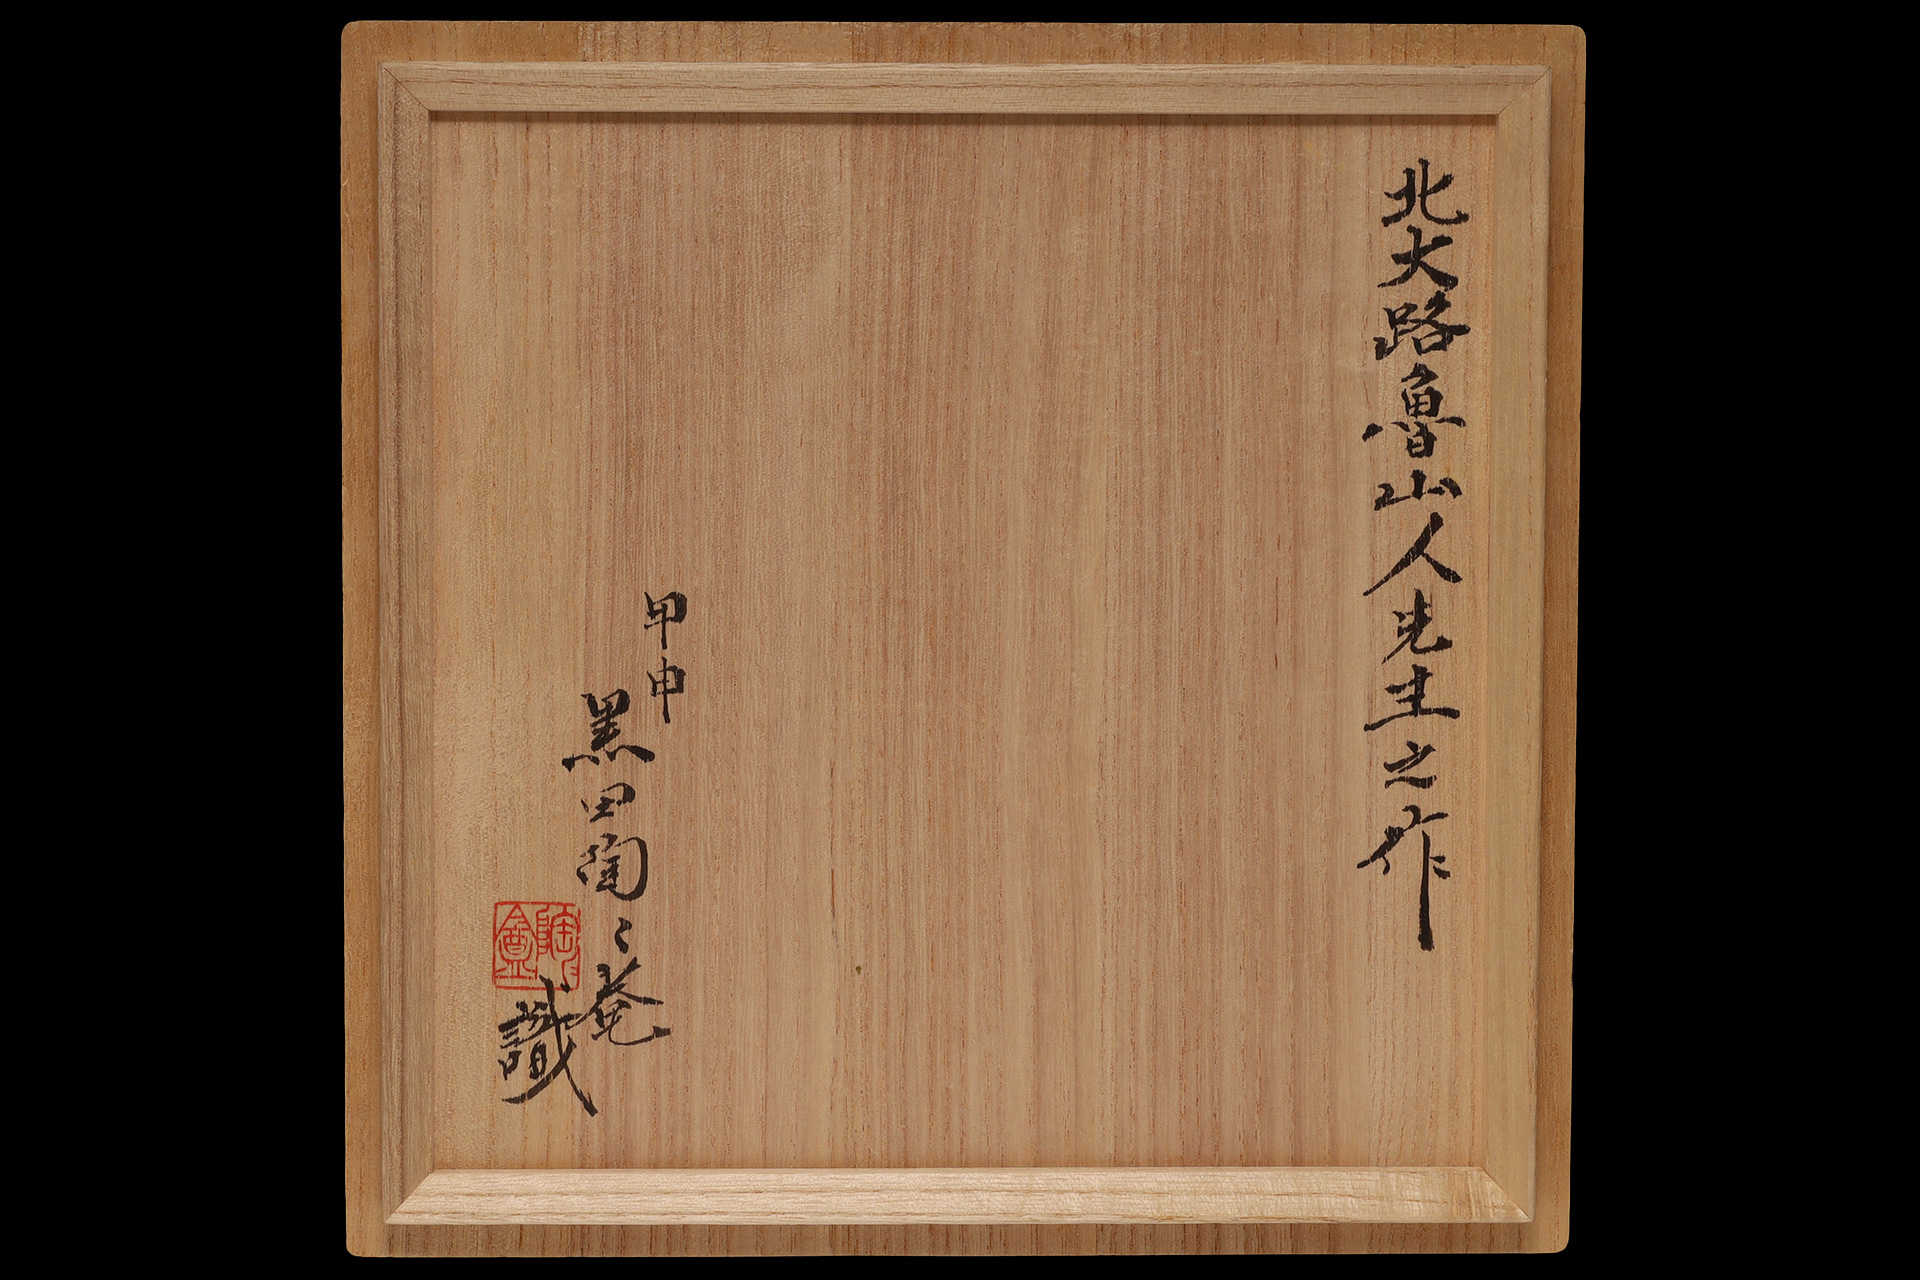 北大路魯山人先生之作
甲申
黒田陶々菴
識